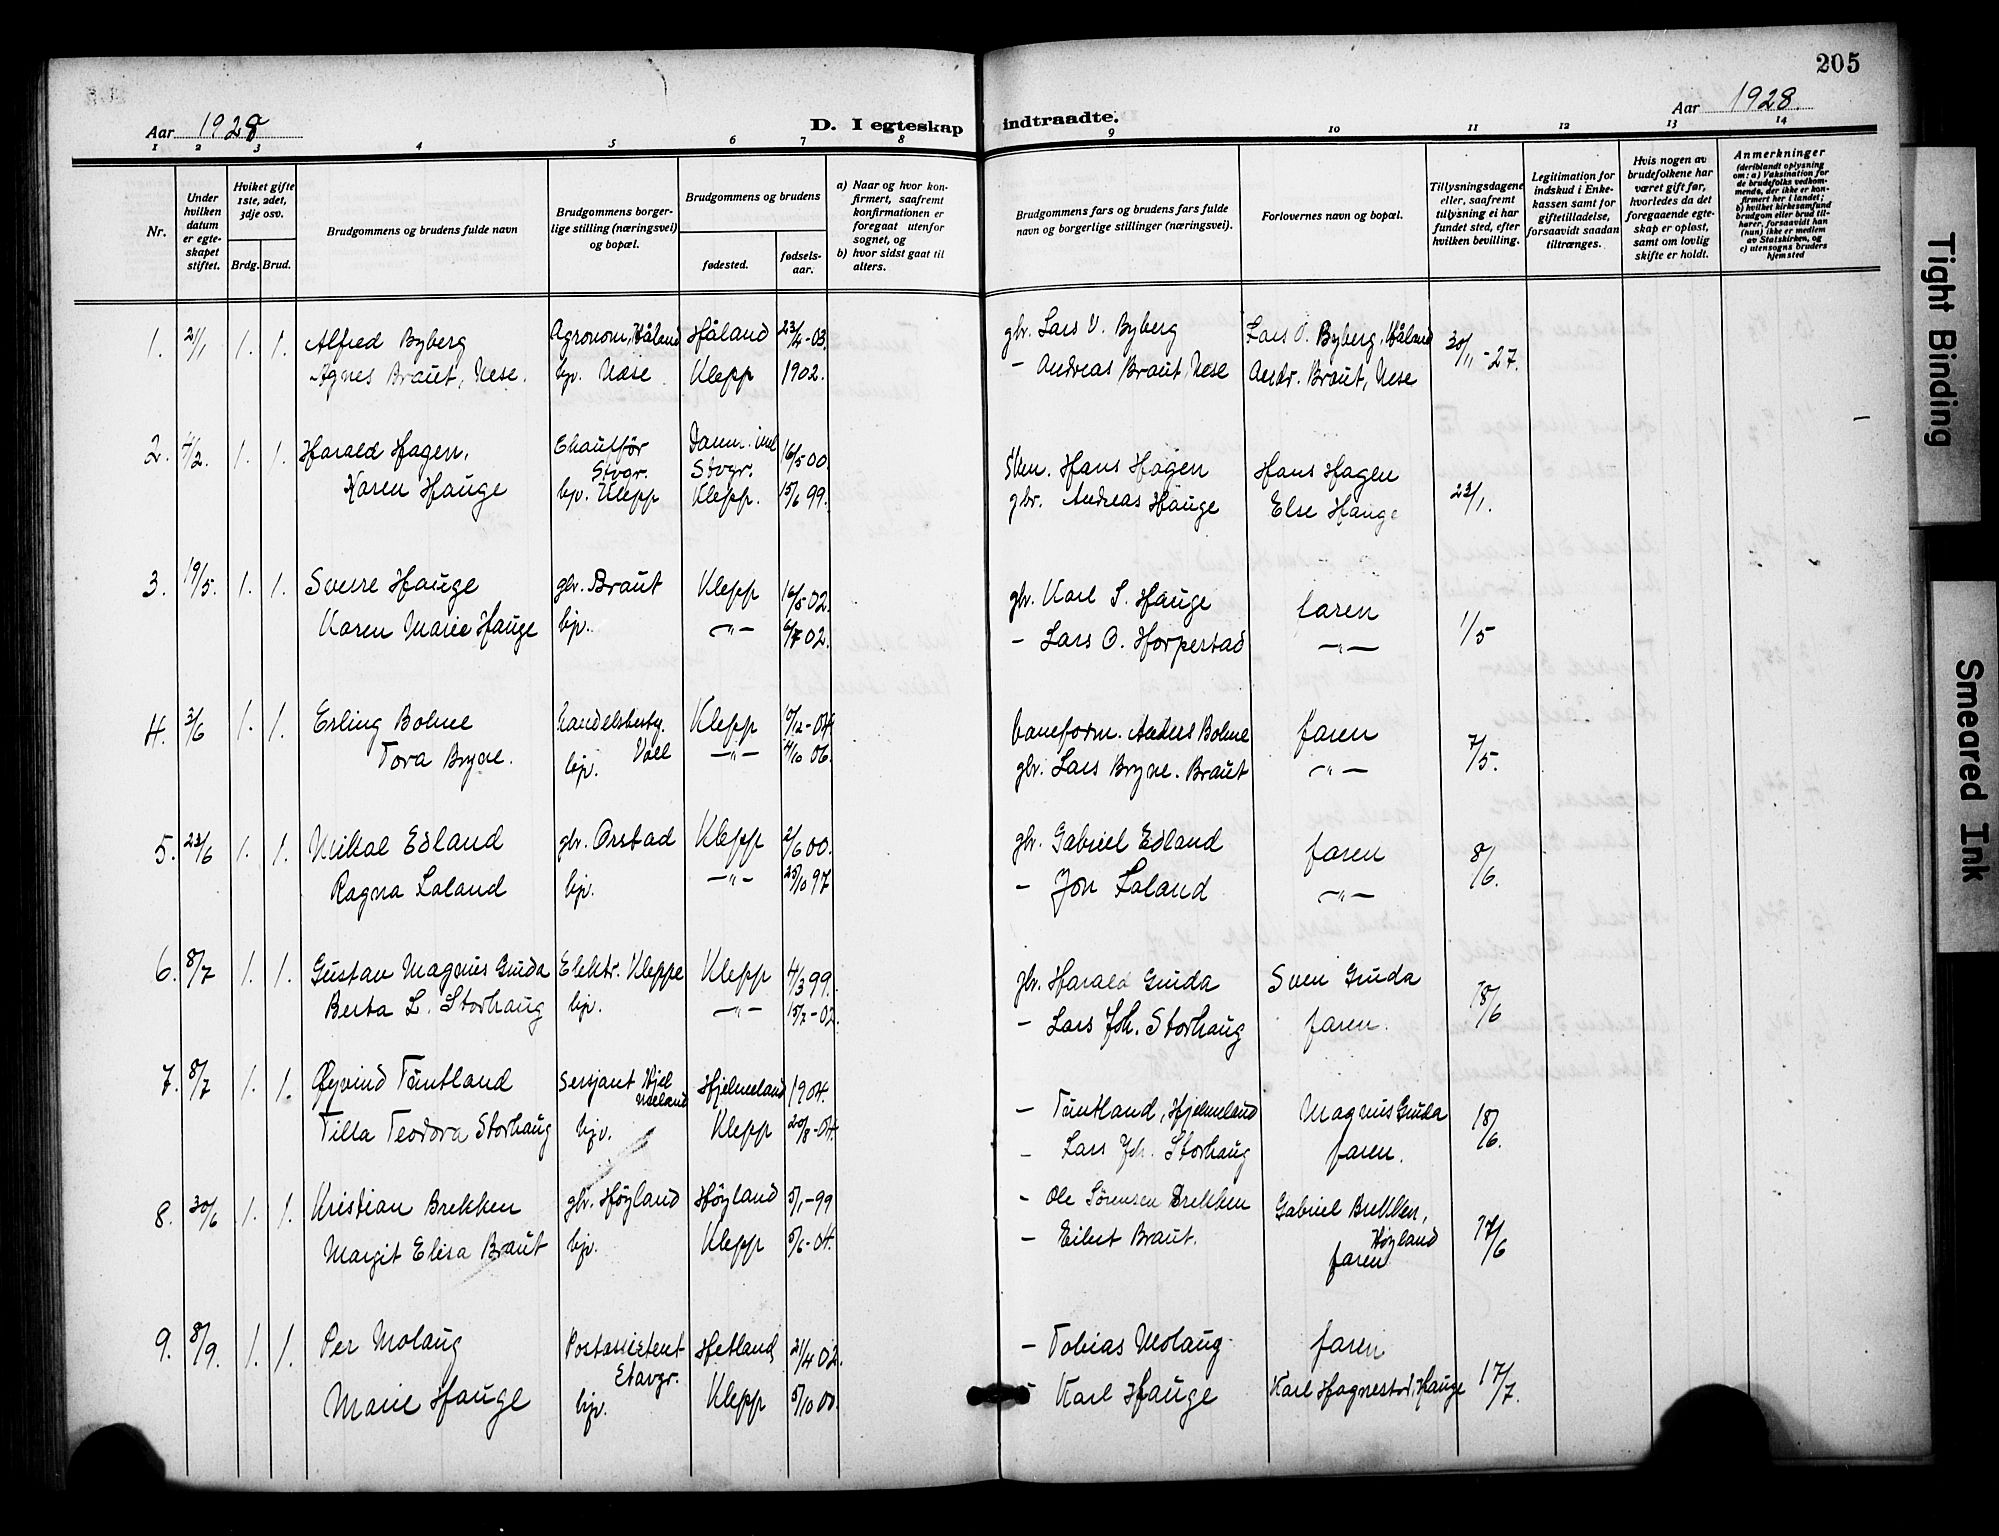 205
Aar 1928
D. I egteskap indtraadte.
Aar 1928.
1 2 3 4 5 6 7 8 9 10 11 12 13 14
Nr.
Under hvilken datum er egteskapet stiftet.
Hviket gifte 1ste, 2det, 3dje osv.
Brdg. Brud.
Brudgommens og brudens fulde navn
Brudgommens borgerlige stilling (næringsvei) og bopæl.
Brudgommens og brudens
fødested.
fødselsaar.
a) Naar og hvor konfirmert, saafremt konfirmationen er foregaat utenfor sognet, og
b) hvor sidst gaat til alters.
Brudgommens fars og brudens fars fulde navn og borgerlige stillinger (næringsvei).
Forlovernes navn og bopæl.
Tillysningsdagene eller, saafremt tillysning ei har fundet sted, efter hvilken bevilling.
Legitimation for indskud i Enkekassen samt for giftetilladelse, forsaavidt saadan tiltrænges.
Hvis nogen av brudefolkene har været gift før, hvorledes da det foregaaende egteskap er opløst, samt om lovlig skifte er holdt.
Anmerkninger (deriblandt oplysning om: a) Vaksination for de brudefolks vedkommende, der ikke er konfirmert her i landet; b) hvilket kirkesamfund brudgom eller brud tilhører, forsaavidt han (hun) ikke er medlem av Statskirken, og c) utensogns bruders hjemsted
1. 21/1 1. 1. Alfred Byberg Agronom, Håland Håland 23/4-03. gbr. Lars O. Byberg Lars O. Byberg, Håland 30/11-27.
Agnes Braut, Nese. hjv. Næse Klepp 1902. - Andreas Braut, Nese Andr. Braut, Nese
2. 4/2. 1. 1. Harald Hagen, Chauffør Stvgr. Stvgr. 16/5 00. Hans Hagen Hans Hagen 23/1.
Karen Hauge hjv. Klepp Klepp. 15/6 99. gbr. Andreas Hauge Else Hauge
3. 19/5. 1. 1. Sverre Hauge gbr. Braut Klepp 16/5 02. gbr. Karl S. Hauge faren 1/5
Karen Marie Hauge hjv. -"- 6/7 02. - Lars O. Horpestad -"-
4. 3/6 1. 1. Erling Bohne handelsbesty. Voll Klepp 9/12-04 baneform. Anders Bohne faren 7/5.
Tora Bryne. hjv. -"- 4/10 06. gbr. Lars Bryne. Braut -"-
5. 23/6 1. 1. Mikal Edland gbr. Orstad Klepp 2/6 00. gbr. Gabriel Edland faren 8/6.
Ragna Laland hjv. -"- 25/10 97 - Jon Laland -"-
6. 8/7 1. 1. Gustav Magnus Gruda Elektr. Kleppe Klepp 4/3 99. gbr. Harald Gruda Sven Gruda 18/6
Berta L. Storhaug hjv. -"- 15/7-02. - Lars Joh. Storhaug faren.
7. 8/7 1. 1. Øyvind Tuntland Sersjant Hjelmeland Hjelmeland 1904. - Tuntland, Hjelmeland Magnus Gruda 18/6.
Tilla Teodora Storhaug hjv. Klepp 20/8-04. - Lars Joh. Storhaug faren.
8. 30/6 1. 1. Kristian Brekken gbr. Höyland Höyland 5/1-99 - Ole Sörensen Brekken Gabriel Brekken, Höyland 17/6
Margit Elisa Braut hjv. Klepp 5/6-04. - Eilert Braut. faren
9. 8/9. 1. 1. Per Molaug Postassistent Stavgr. Hetland, 21/4 02. - Tobias Molaug faren 17/7.
Marie Hauge hjv. Klepp 5/10 00. - Karl Hauge Karl Hognestad, Hauge
Tight Binding
Smeared Ink